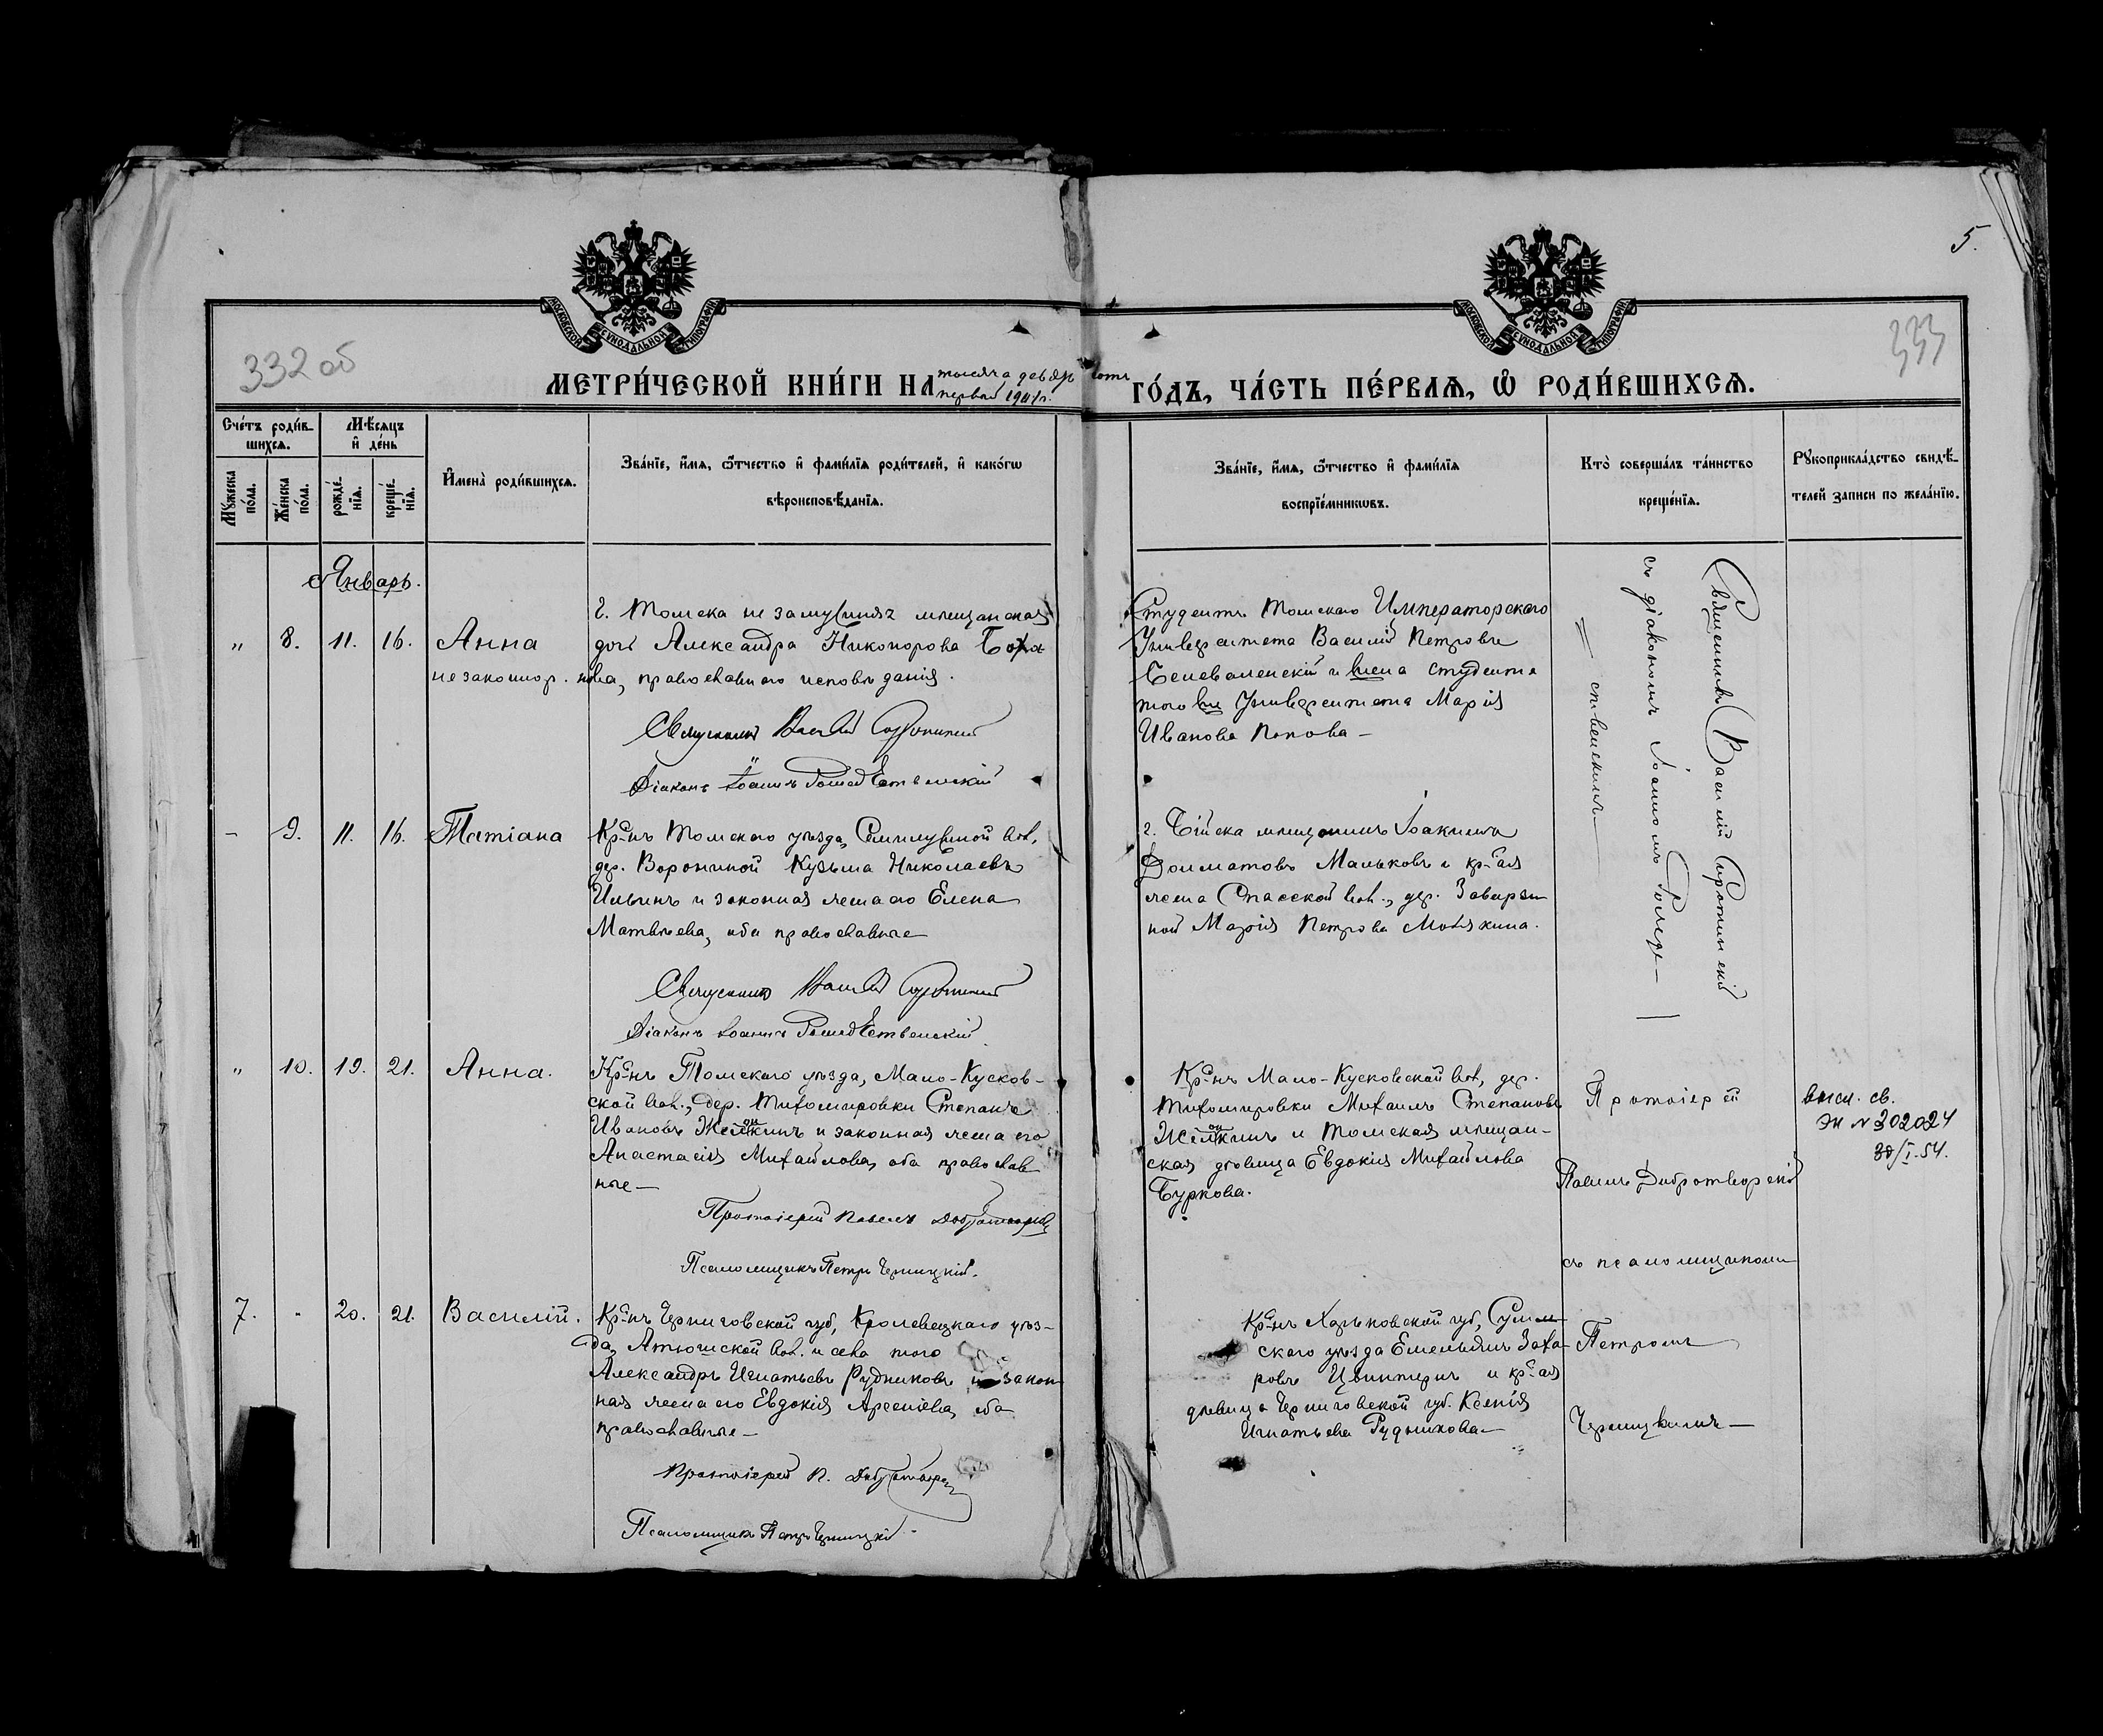 5.
332 об
333
МОСКОВСКОЙ СѴНОДАЛЬНОЙ ТИПОГРАФІИ
МОСКОВСКОЙ СѴНОДАЛЬНОЙ ТИПОГРАФІИ
МЕТРИ́ЧЕСКОЙ КНИ́ГИ НА тысяча девять сотъ первый 1901 г. ГО́ДЪ, ЧА́СТЬ ПЕ́РВАѦ, Ѽ РОДИ́ВШИХСѦ.
Сче́тъ роди́в-
шихсѧ.
Мѣ́сѧцъ
и҆ де́нь
Мꙋ́жеска
по́ла.
Же́нска
по́ла.
рожде́-
нїѧ.
креще́-
нїѧ.
И҆мена̀ роди́вшихсѧ.
Зва́нїе, и҆́мѧ, ѻ҆́тчество и҆ фами́лїѧ роди́телей, и҆ како́гѡ
вѣроисповѣ́данїѧ.
Зва́нїе, и҆́мѧ, ѻ҆́тчество и҆ фами́лїѧ
воспрїе́мникѡвъ.
Кто̀ соверша́лъ та́инство
креще́нїѧ.
Рꙋкоприкла́дство свидѣ́-
телей записи по жела́нїю.
Январь.
" 8. 11. 16. Анна
незаконнор.
г. Томска незамужняя мѣщанская
дочь Александра Никонорова
нова, православнаго исповѣданія.
Священникъ Василій Сиротинскій
Діаконъ Іоаннъ Рождественскій
Студентъ Томскаго Императорскаго
Университета Василій Петровъ
и жена студента
того же Университета Марія
Иванова Попова –
Священникъ Василій Сиротинскій
съ діакономъ Іоанномъ Рожде-
ственскимъ
- 9. 11. 16. Татіана
Кр-нъ Томскаго уѣзда, Семилужной вол.,
дер. Ворониной Кузьма Николаевъ
Ильинъ и законная жена его Елена
Матвѣева, оба православные
Священникъ Василій Сиротинскій
Діаконъ Іоаннъ Рождественскій
г. Бійска мѣщанинъ Іоакимъ
Долматовъ Мальковъ и кр-ая
жена Спасской вол., дер. Заварзи-
ной Марія Петрова Молякина.
" 10. 19. 21. Анна.
Кр-нъ Томскаго уѣзда, Мало-Кусков-
ской вол., дер. Тихомировки Степанъ
Ивановъ и законная жена его
Анастасія Михайлова, оба православ-
ные –
Протоіерей Павелъ Добротворскій
Псаломщикъ Петръ Черницкій.
Кр-нъ Мало-Кусковской вол., дер.
Тихомировки Михаилъ Степановъ
и Томская мѣщан-
ская дѣвица Евдокія Михайлова
Буркова.
Протоіерей
Павелъ Добротворскій
съ псаломщикомъ
Петромъ
Черницкимъ –
высл. св.
ЭЖ № 302024
30/I-54.
7. - 20. 21. Василій.
Кр-нъ Черниговской губ., Кролевецкаго уѣз-
да, Атюшской вол. и села того
Александръ Игнатьевъ Рудниковъ и закон-
ная жена его Евдокія Арсеніева, оба
православные –
Протоіерей П. Добротворскій
Псаломщикъ Петръ Черницкій
Кр-нъ Харьковской губ., Сум-
скаго уѣзда Емельянъ Заха-
ровъ и кр-ая
дѣвица Черниговской губ. Ксенія
Игнатьева Рудникова –